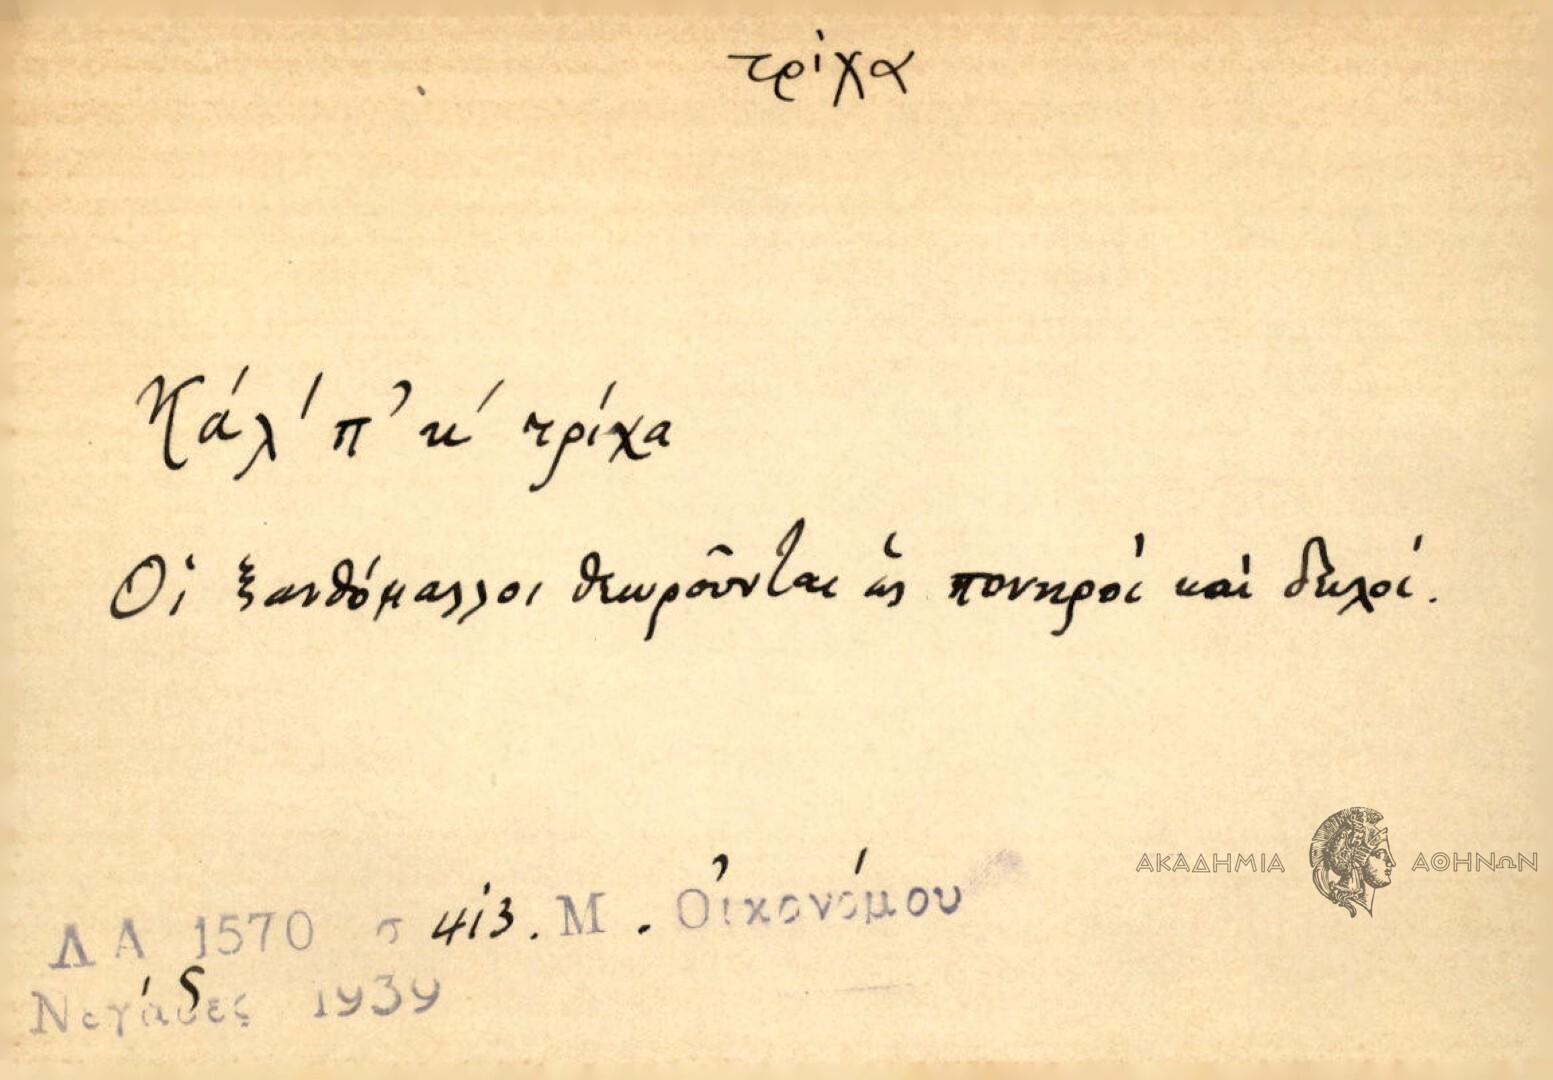 τρίχα
Κάλ' π' κ' τρίχα
Οἱ ξανθόμαλλοι θεωροῦνται ὡς πονηροί καὶ δειλοί.
ΑΚΑΔΗΜΙΑ ΑΘΗΝΩΝ
ΛΑ 1570 σ 413. Μ. Οἰκονόμου
Νεγάδες 1939